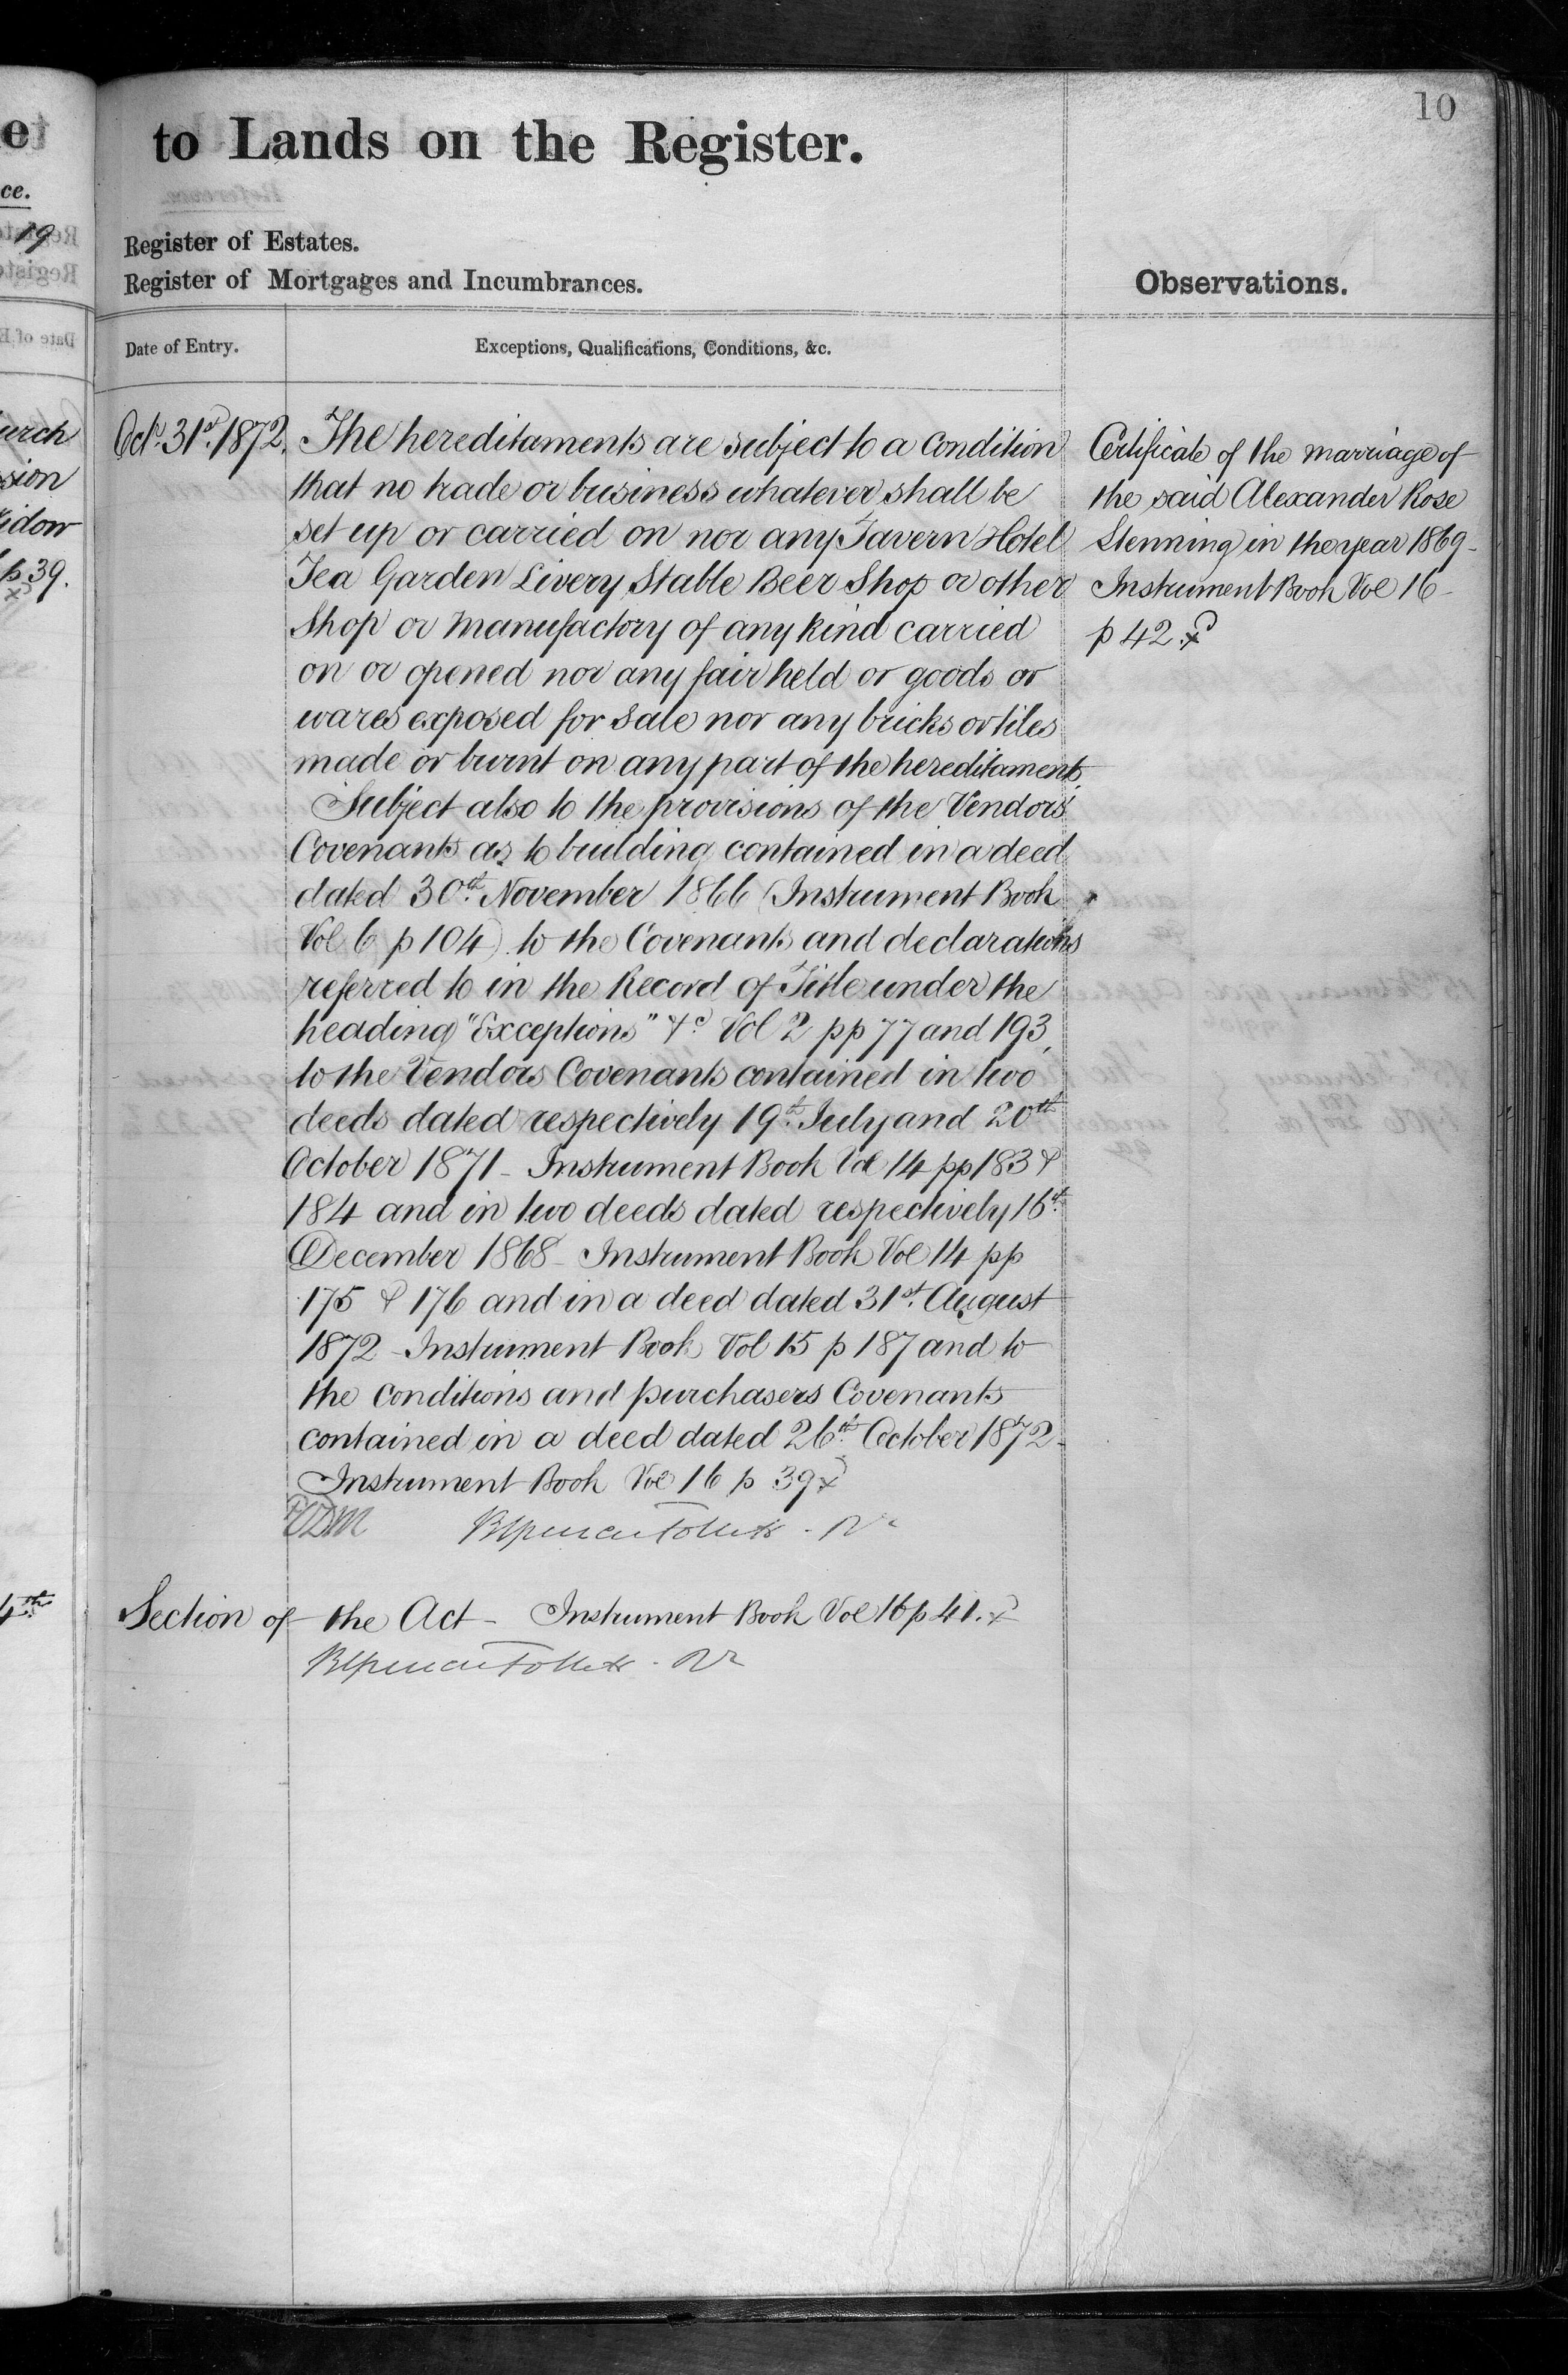 10
to Lands on the Register.
Register of Estates.
Register of Mortgages and Incumbrances.
Observations.
Date of Entry.
Exceptions, Qualifications, Conditions, &c.
Octr. 31st. 1872.
The hereditaments are subject to a condition
that no trade or business whatever shall be
set up or carried on nor any Tavern Hotel
Tea Garden Livery Stable Beer Shop or other
Shop or Manufactory of any kind carried
on or opened nor any fair held or goods or
wares exposed for sale nor any bricks or tiles
made or burnt on any part of the hereditaments.
Subject also to the provisions of the Vendors'
Covenants as to building contained in a deed
dated 30th. November 1866 (Instrument Book
Vol 6 p 104). to the Covenants and declarations
referred to in the Record of Title under the
heading "Exceptions" &c Vol 2 pp 77 and 193,
to the Vendors Covenants contained in two
deeds dated respectively 19th. July and 20th
October 1871 - Instrument Book Vol 14 pp 183 &
184 and in two deeds dated respectively 16th.
December 1868 - Instrument Book Vol 14 pp
175 & 176 and in a deed dated 31st. August
1872 - Instrument Book Vol 15 p 187 and to
the conditions and purchasers Covenants
contained in a deed dated 26th. October 1872 -
Instrument Book Vol 16 p 39
Section of the Act - Instrument Book Vol 16 p 41.
Certificate of the marriage of
the said Alexander Rose
Stenning in the year 1869 -
Instrument Book Vol 16 -
p 42.
e
ce.
19
urch
sion
idow
p 39.
4th